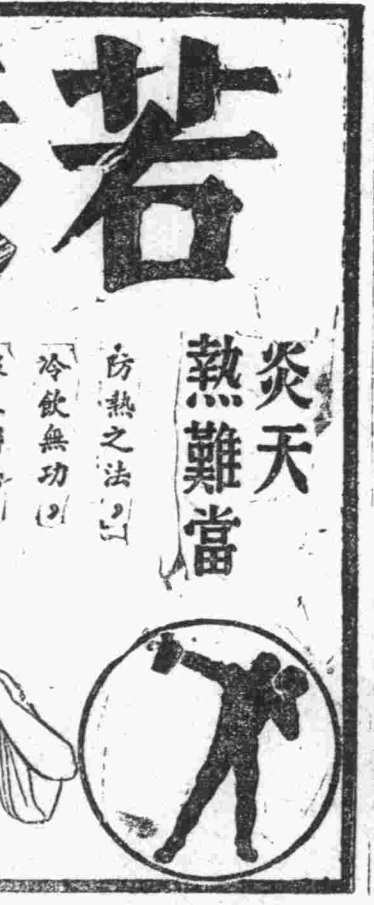 若
炎天
熱難當
防熱之法，
冷飲無功，